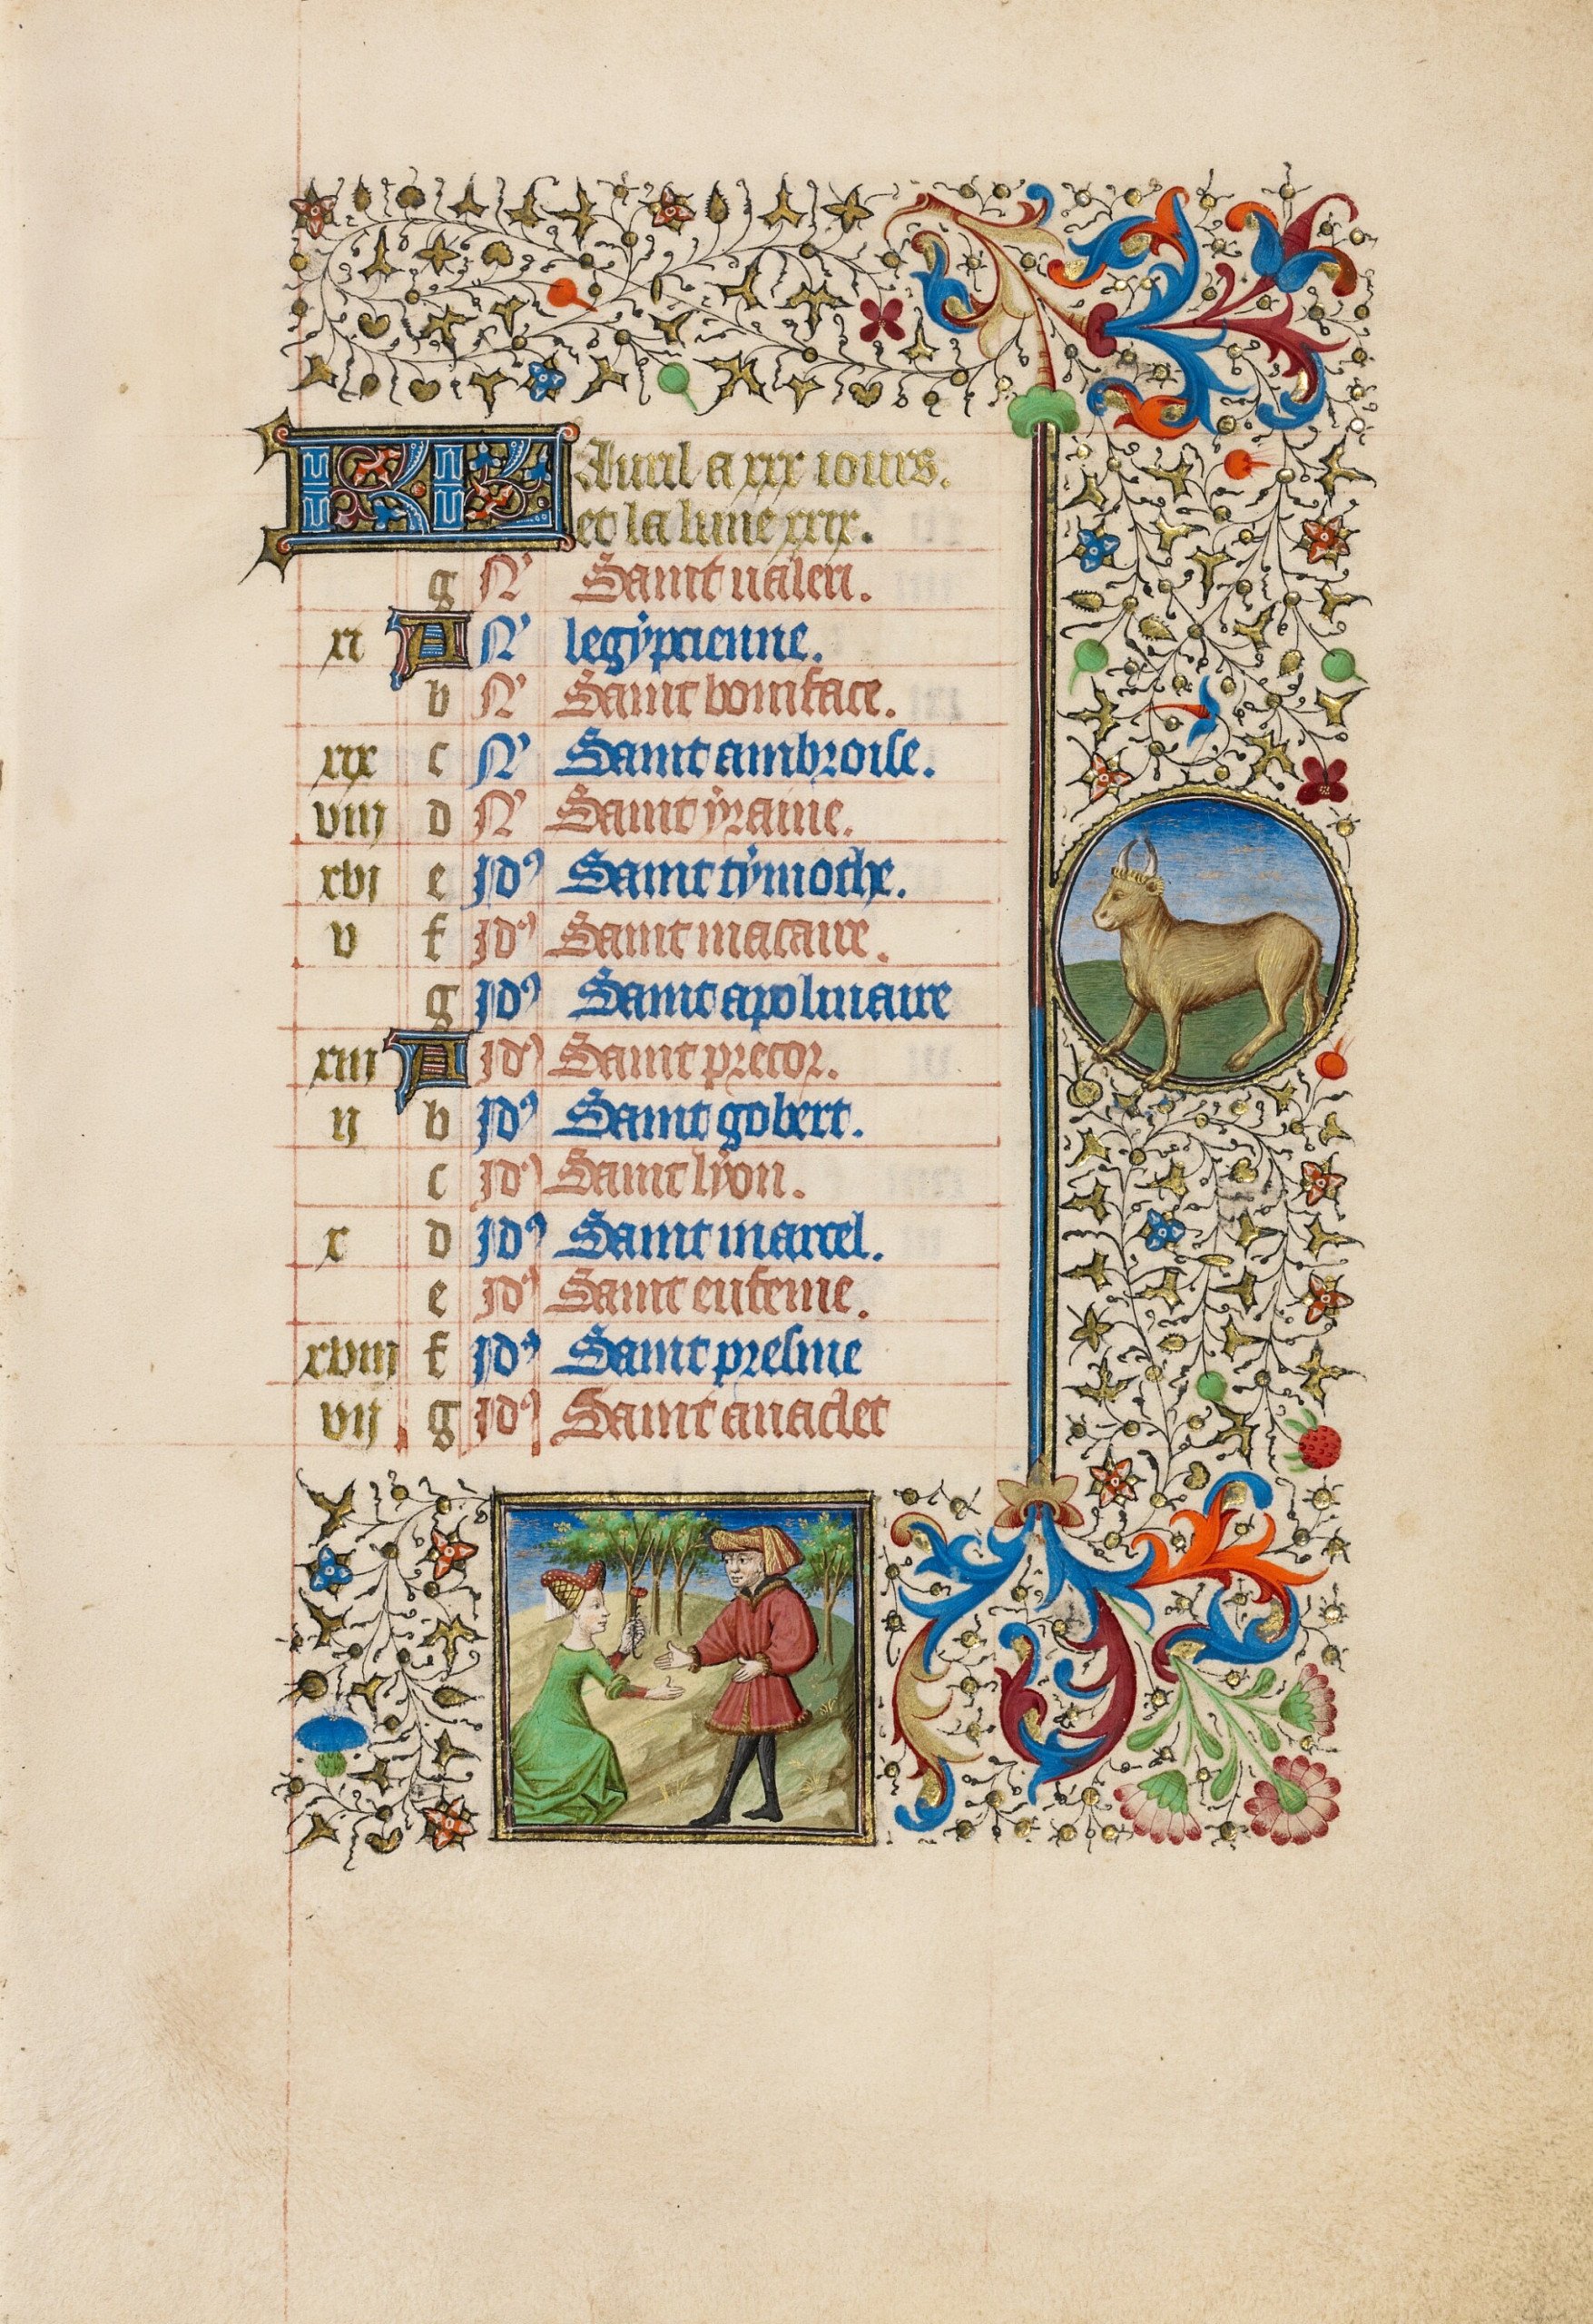 KL Auril a xxx iours.
et la lune xxix.
g N' Saint ualeri.
xi A N' legypcienne.
b N' Saint boniface.
xix c N' Saint ambroise.
viij d N' Saint yraine.
xvj e Jd' Saint tymothe.
v f Jd' Saint macaire.
g Jd' Saint apolinaire
xiii A Jd' Saint precor.
ij b Jd' Saint gobert.
c Jd' Saint lyon.
x d Jd' Saint marcel.
e Jd' Saint eufemie.
xviii f Jd' Saint presme
vij g Jd' Saint anaclet